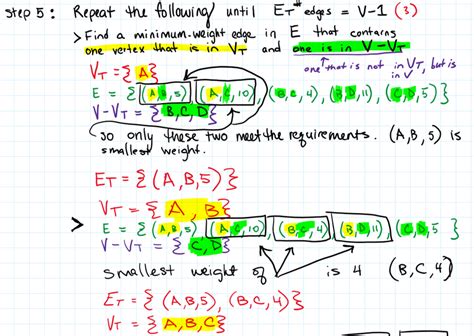 Step 5: Repeat the following until E_T # edges = V-1 (3)
> Find a minimum-weight edge in E that contains
one vertex that is in V_T and one is in V-V_T
one that is not in V_T, but is
in V
V_T = {A}
E = {(A,B,5), (A,C,10), (B,C,4), (B,D,11), (C,D,5)}
V-V_T = {B,C,D}
so only these two meet the requirements. (A,B,5) is
smallest weight.
E_T = {(A,B,5)}
V_T = {A,B}
> E = {(A,B,5), (A,C,10), (B,C,4), (B,D,11), (C,D,5}
V-V_T = {C,D}
smallest weight of is 4 (B,C,4)
E_T = {(A,B,5), (B,C,4)}
V_T = {A,B,C}